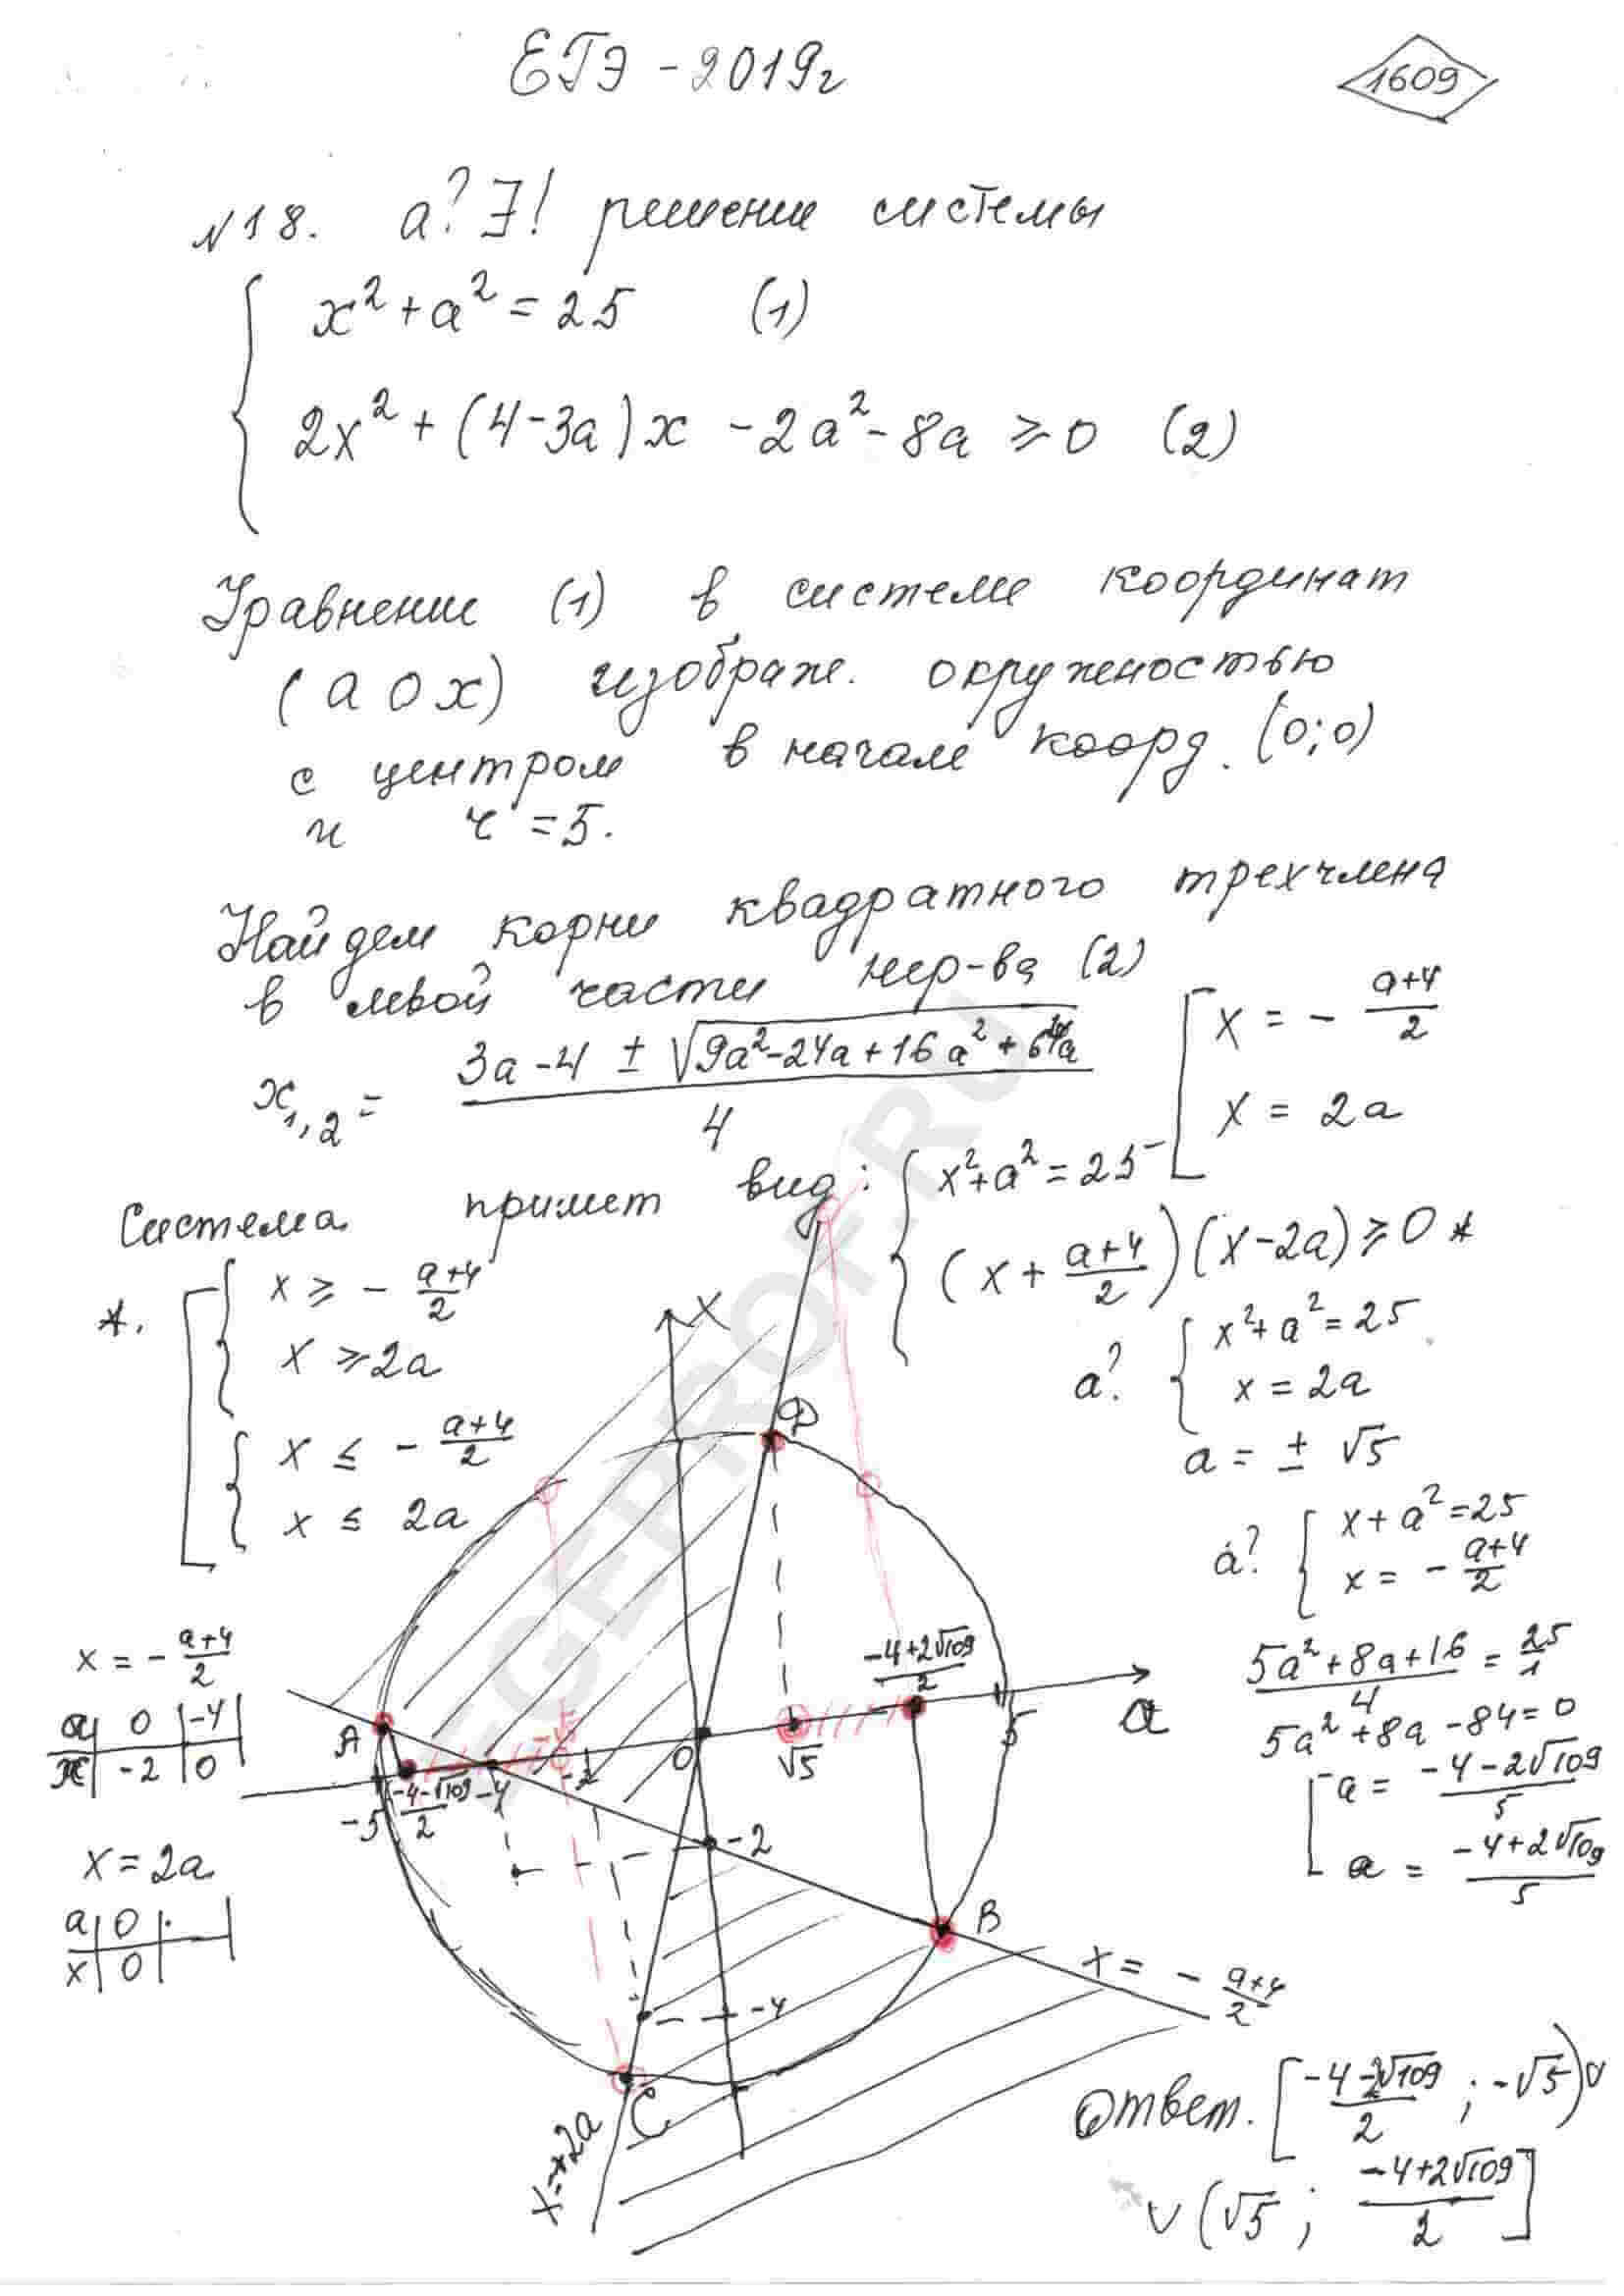 ЕГЭ - 2019г
1609
№18. a? ∃! решение системы
x² + a² = 25 (1)
2x² + (4-3a)x - 2a² - 8a ⩾ 0 (2)
Уравнение (1) в системе координат
(a O x) изображ. окружностью
с центром в начале коорд. (0;0)
и r = 5.
Найдем корни квадратного трехчлена
в левой части нер-ва (2)
x₁,₂ = (3a - 4 ± √(9a² - 24a + 16a² + 64a)) / 4
[ x = - (a+4)/2
x = 2a
Система примет вид: { x² + a² = 25
(x + (a+4)/2)(x - 2a) ⩾ 0 *
*. [ { x ⩾ - (a+4)/2
x ⩾ 2a
{ x ≤ - (a+4)/2
x ≤ 2a
a? { x² + a² = 25
x = 2a
a = ± √5
a? { x + a² = 25
x = - (a+4)/2
(5a² + 8a + 16)/4 = 25/1
5a² + 8a - 84 = 0
[ a = (-4 - 2√109)/5
a = (-4 + 2√109)/5
x = - (a+4)/2
a | 0 | -4
x | -2 | 0
x = 2a
a | 0 |
x | 0 |
x
D
(-4+2√109)/2
A
O
√5
5
a
-5
(-4-√109)/2
-4
-√5
-2
-2
B
-4
C
x = 2a
x = - (a+4)/2
Ответ. [(-4-2√109)/2 ; -√5) ∪
∪ (√5 ; (-4+2√109)/2]
EGEPROF.RU